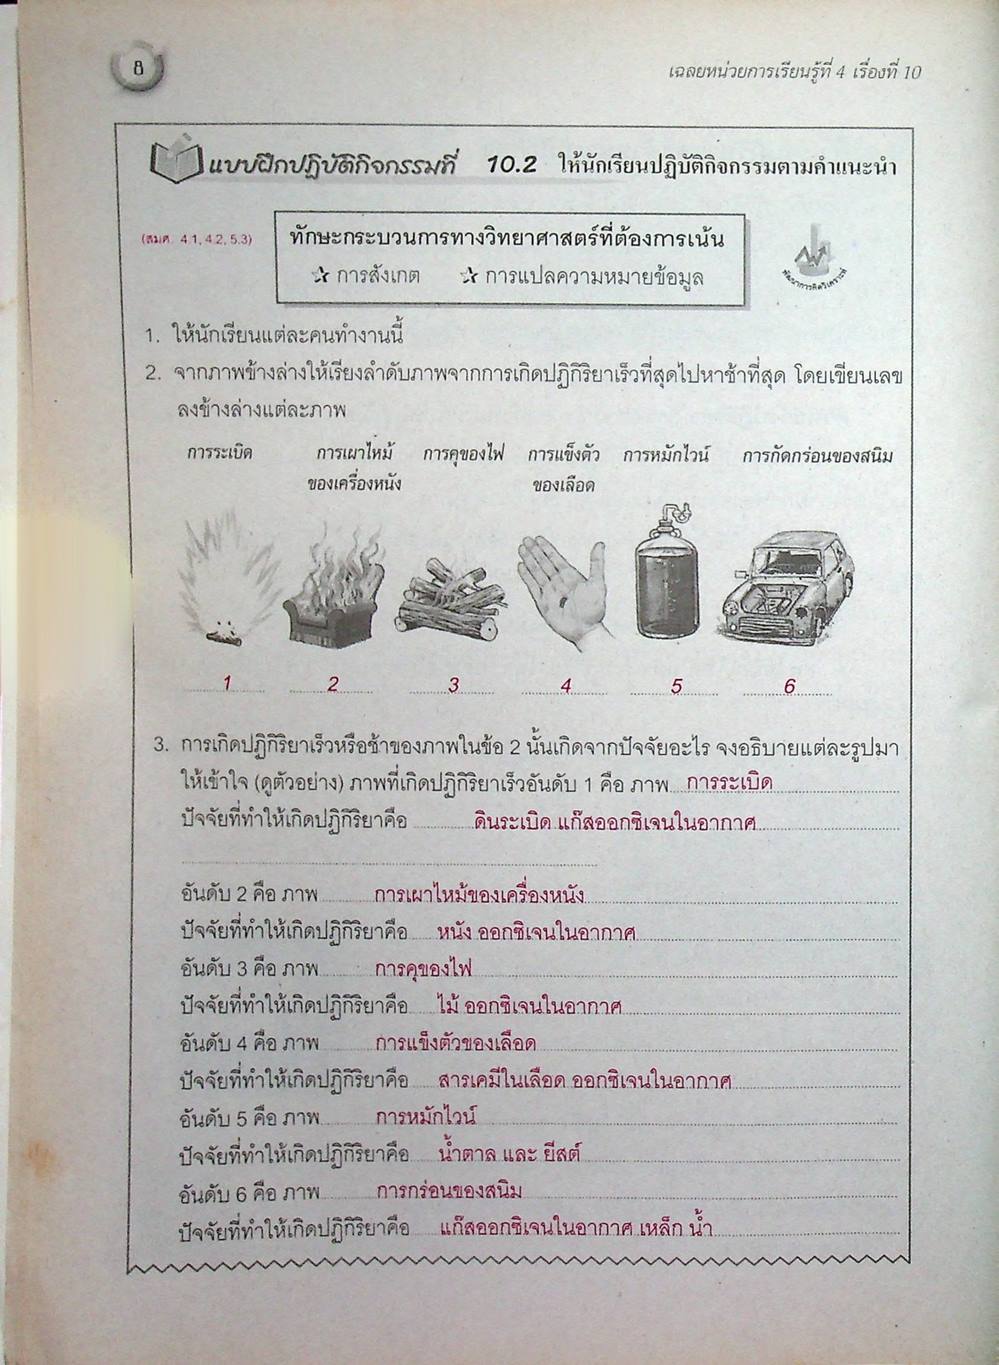 8
เฉลยหน่วยการเรียนรู้ที่ 4 เรื่องที่ 10
แบบฝึกปฏิบัติกิจกรรมที่ 10.2 ให้นักเรียนปฏิบัติกิจกรรมตามคำแนะนำ
(สมศ. 4.1, 4.2, 5.3)
ทักษะกระบวนการทางวิทยาศาสตร์ที่ต้องการเน้น
☆ การสังเกต ☆ การแปลความหมายข้อมูล
พัฒนาการคิดวิเคราะห์
1. ให้นักเรียนแต่ละคนทำงานนี้
2. จากภาพข้างล่างให้เรียงลำดับภาพจากการเกิดปฏิกิริยาเร็วที่สุดไปหาช้าที่สุด โดยเขียนเลข
ลงข้างล่างแต่ละภาพ
การระเบิด การเผาไหม้ การคุของไฟ การแข็งตัว การหมักไวน์ การกัดกร่อนของสนิม
ของเครื่องหนัง ของเลือด
1 2 3 4 5 6
3. การเกิดปฏิกิริยาเร็วหรือช้าของภาพในข้อ 2 นั้นเกิดจากปัจจัยอะไร จงอธิบายแต่ละรูปมา
ให้เข้าใจ (ดูตัวอย่าง) ภาพที่เกิดปฏิกิริยาเร็วอันดับ 1 คือ ภาพ การระเบิด
ปัจจัยที่ทำให้เกิดปฏิกิริยาคือ ดินระเบิด แก๊สออกซิเจนในอากาศ
อันดับ 2 คือ ภาพ การเผาไหม้ของเครื่องหนัง
ปัจจัยที่ทำให้เกิดปฏิกิริยาคือ หนัง ออกซิเจนในอากาศ
อันดับ 3 คือ ภาพ การคุของไฟ
ปัจจัยที่ทำให้เกิดปฏิกิริยาคือ ไม้ ออกซิเจนในอากาศ
อันดับ 4 คือ ภาพ การแข็งตัวของเลือด
ปัจจัยที่ทำให้เกิดปฏิกิริยาคือ สารเคมีในเลือด ออกซิเจนในอากาศ
อันดับ 5 คือ ภาพ การหมักไวน์
ปัจจัยที่ทำให้เกิดปฏิกิริยาคือ น้ำตาล และ ยีสต์
อันดับ 6 คือ ภาพ การกร่อนของสนิม
ปัจจัยที่ทำให้เกิดปฏิกิริยาคือ แก๊สออกซิเจนในอากาศ เหล็ก น้ำ